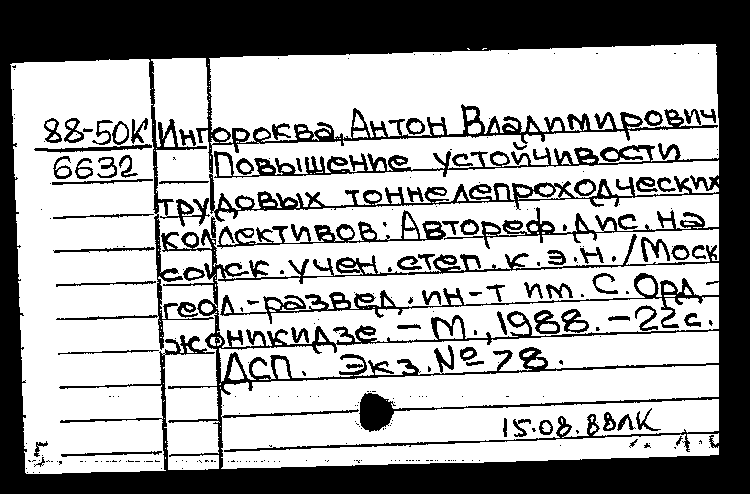 88-50К Ингороква, Антон Владимирович
6632 Повышение устойчивости
трудовых тоннелепроходческих
коллективов: Автореф. дис. на
соиск. учен. степ. к. э. н. / Моск
геол.-развед. ин-т им. С. Орд-
жоникидзе. – М., 1988. – 22 с.
ДСП. Экз. № 78.
15.08.88ЛК